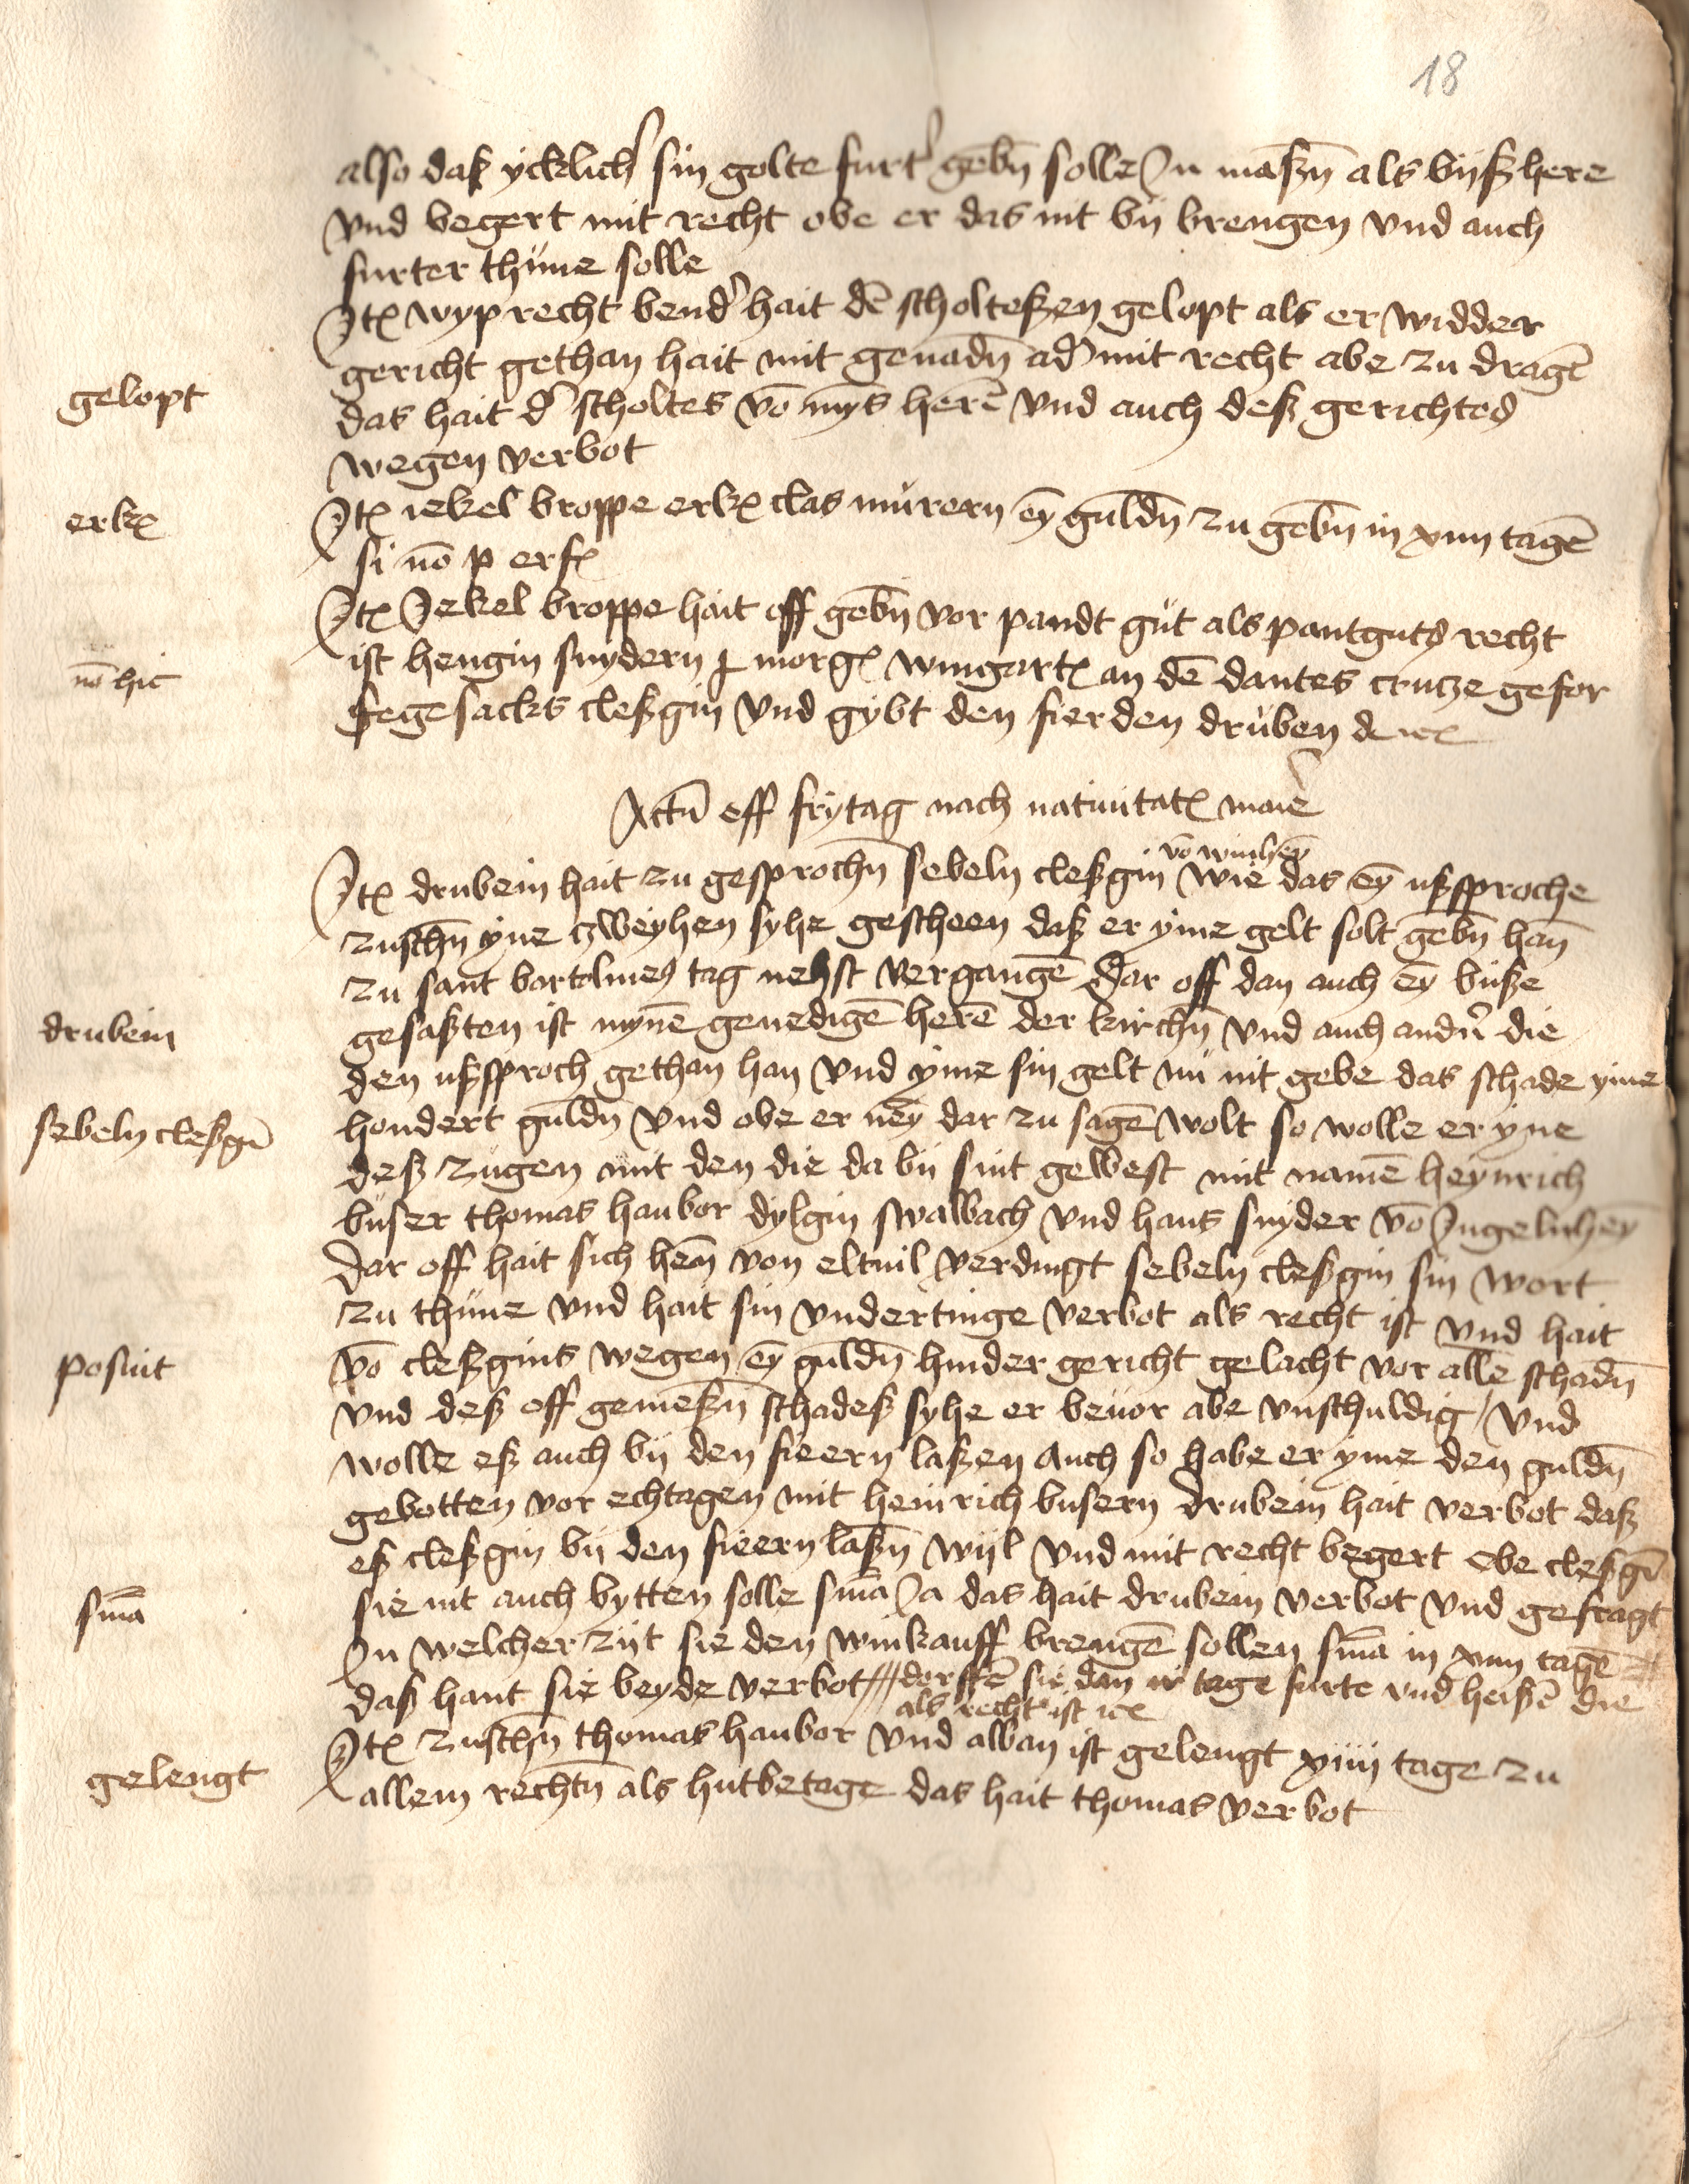 18
also daß ycklich' sin golte furt' gebn̄ solle In maßn̄ als bijßhere
vnd begert mit recht obe er das nit bij brengen vnd auch
furter thüne solle
Itꝫ wyprecht bend' hait dē scholteßen gelopt als er widder
gericht gethan hait mit genadn̄ ad' mit recht abe zu dragē
gelopt
das hait d' scholtes vō myͤs herē vnd auch deß gerichtes
wegen verbot
erkꝫ
Itꝫ iekel broppe erkꝫ clas mürern eȳ guldn̄ zu gebn̄ in xiiij tagē
si nō p erfꝫ
Itꝫ Jekel broppe hait off gebn̄ vor pandt güt als pantguts recht
nō hic
ist hengin snydern j morgꝫ wingartꝫ an dē dantes crutze gefor
fegesacks cleßgin vnd gybt den fierden drüben
Actū off frytag nach natiuitatꝫ marie
vō winhey̅
Itꝫ drubein hait zu gesprochn̄ sebeln cleßgin wie das eȳ ußsproche
zuschn̄ yne zweyhen syhe gescheen daß er yme gelt solt gebn̄ han̄
zu sant bartolmes tag nehst vergangē Dar off dan auch eȳ buße
drubein
gesaßten ist mynē genedigē herē der kirchn̄ vnd auch andn̄ die
den ußsproch gethan han vnd yme sin gelt nü nit gebe das schade yme
sebeln cleßgī
hondert guldn̄ vnd obe er ney̅ dar zu sagē wolt so wolle er yne
deß zügen mit den die da bij sint gewest mit namē heynrich
büser thomas haubor dylgin swalbach vnd hans snyder vō Ingelnhey̅
Dar off hait sich hen̄ von eltuil verdingt sebeln cleßgin sin wort
zu thüne vnd hait sin vndertinge verbot als recht ist vnd hait
posuit
vō cleßgins wegen eȳ guldn̄ hinder gericht gelacht vor alle schadn̄
vnd deß off gemeßn̄ schadeß syhe er beuor abe vnschuldig / vnd
wolle eß auch bij den fieern laßen Auch so habe er yme den guldn̄
gebotten vor echtagen mit heinrich busern drubein hait verbot daß
eß cleßgin bij den fieern laßn̄ wijl vnd mit recht begert Obe cleßgī
snīa
sie nit auch bytten solle snīa Ja das hait drubein verbot vnd gefragt
In welcher zijt sie den winkauff brengē sollen snīa in xiiij tagē
daß hant sie beyde verbot dorffē sie dan ir tage furte vnd heißē die
als recht ist
Itꝫ zuschn̄ thomas haubor vnd alban ist gelengt xiiij tage zu
gelengt
allem rechtn̄ als hutbetage das hait thomas verbot